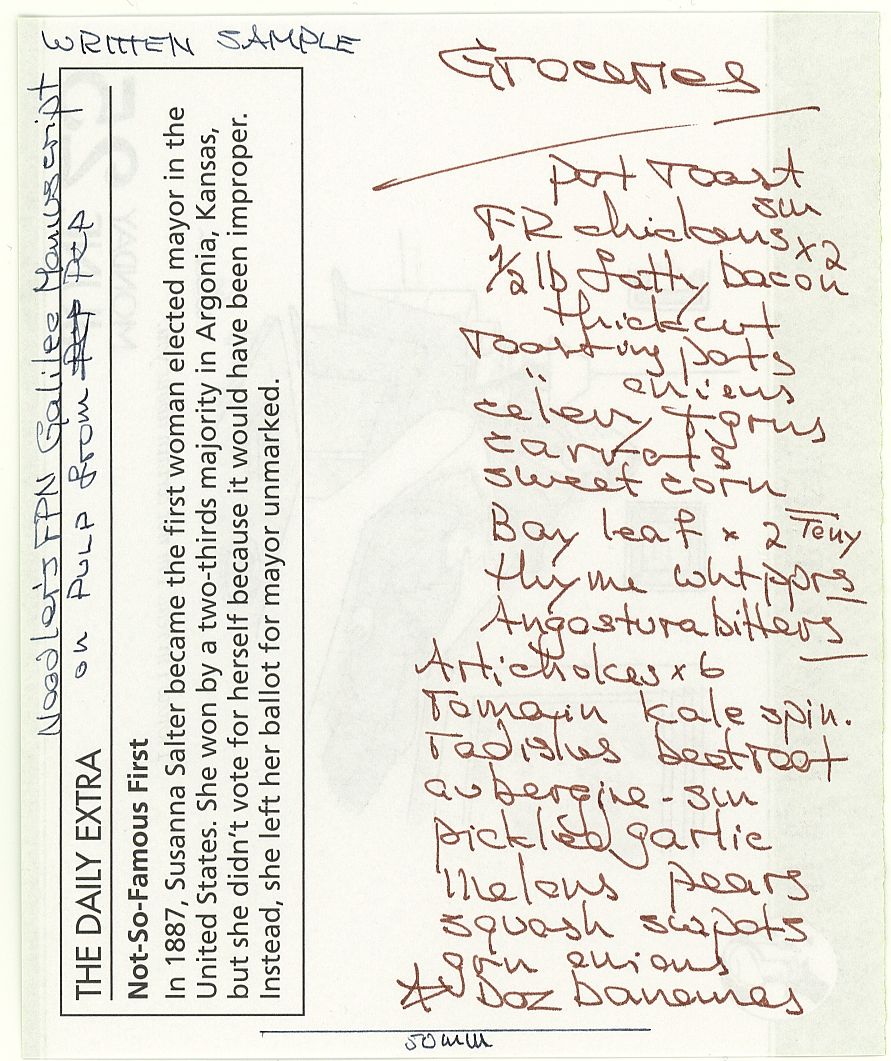 WRITTEN SAMPLE
Noodler's FPN Galileo Manuscript
on PULP from PCP
THE DAILY EXTRA
Not-So-Famous First
In 1887, Susanna Salter became the first woman elected mayor in the
United States. She won by a two-thirds majority in Argonia, Kansas,
but she didn't vote for herself because it would have been improper.
Instead, she left her ballot for mayor unmarked.
Groceries
pot roast
sm
FR chickens x2
1/2 lb fatty bacon
thick cut
roasting pots
" onions
celery & grns
carrots
sweet corn
Bay leaf x 2
thyme
Angostura bitters
Artichokes x 6
romain kale spin.
radishes beetroot
aubergine - sm
pickled garlic
melons pears
squash swpots
grn onions
Doz bananas
50mm